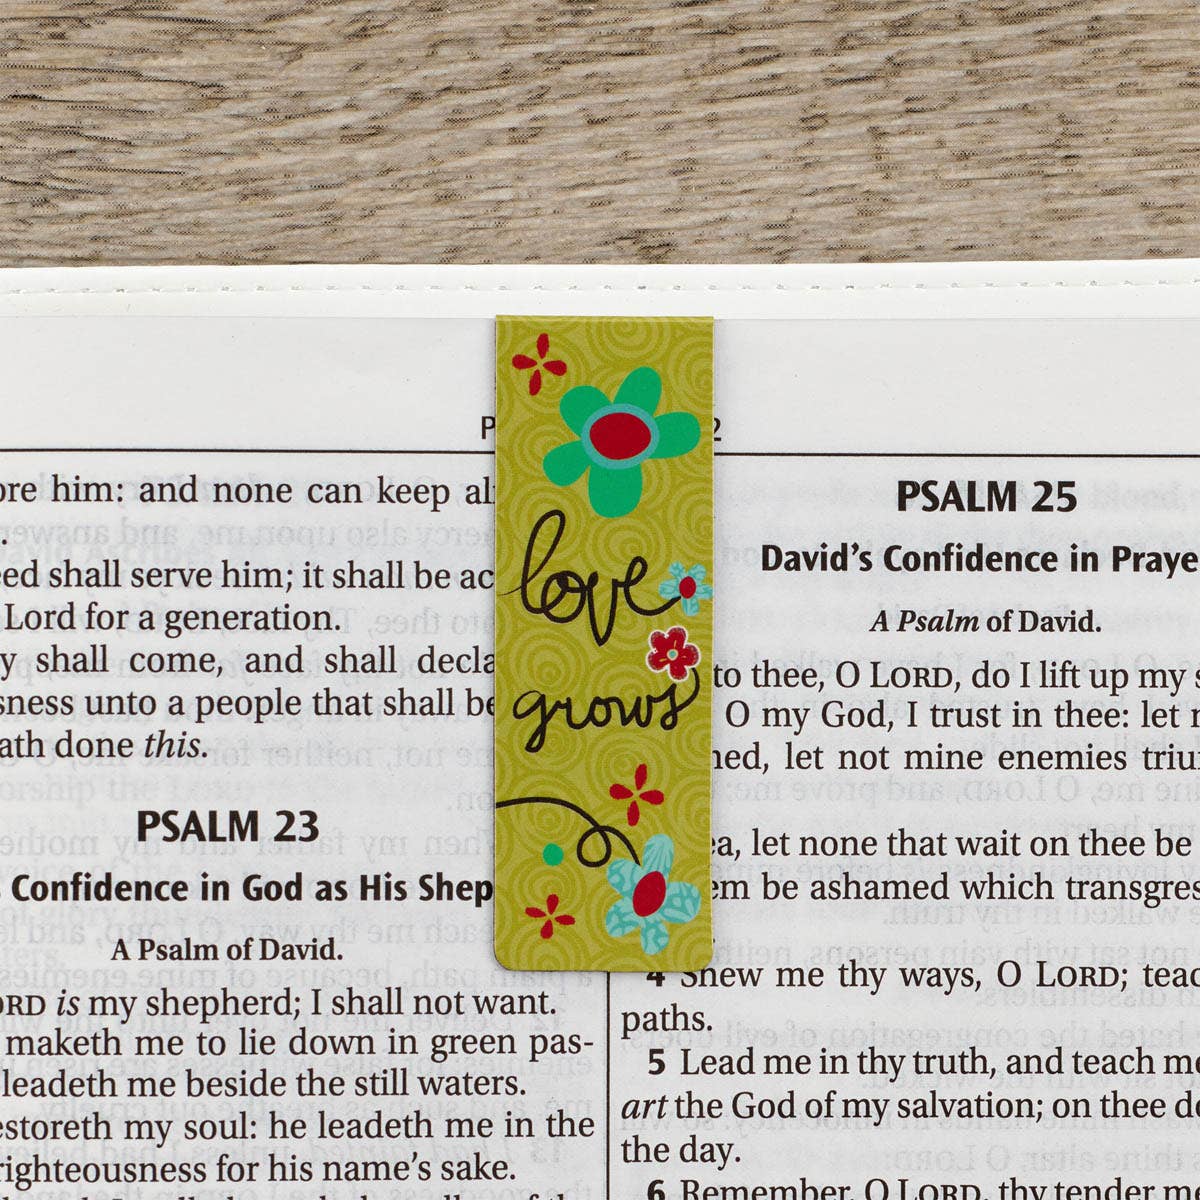 ore him: and none can keep
eed shall serve him; it shall be
Lord for a generation.
shall come, and shall
unto a people that shall
done this.
PSALM 23
Confidence in God as His
A Psalm of David.
is my shepherd; I shall not want.
maketh me to lie down in green pas-
leadeth me beside the still waters.
my soul: he leadeth me in the
righteousness for his name's sake.
love
grows
PSALM 25
David's Confidence in
A Psalm of David.
to thee, O LORD, do I lift up my
O my God, I trust in thee: let
let not mine enemies
let none that wait on thee be
be ashamed which
4 Shew me thy ways, O LORD;
paths.
5 Lead me in thy truth, and teach
art the God of my salvation; on thee
the day.
6 Remember, O LORD, thy tender